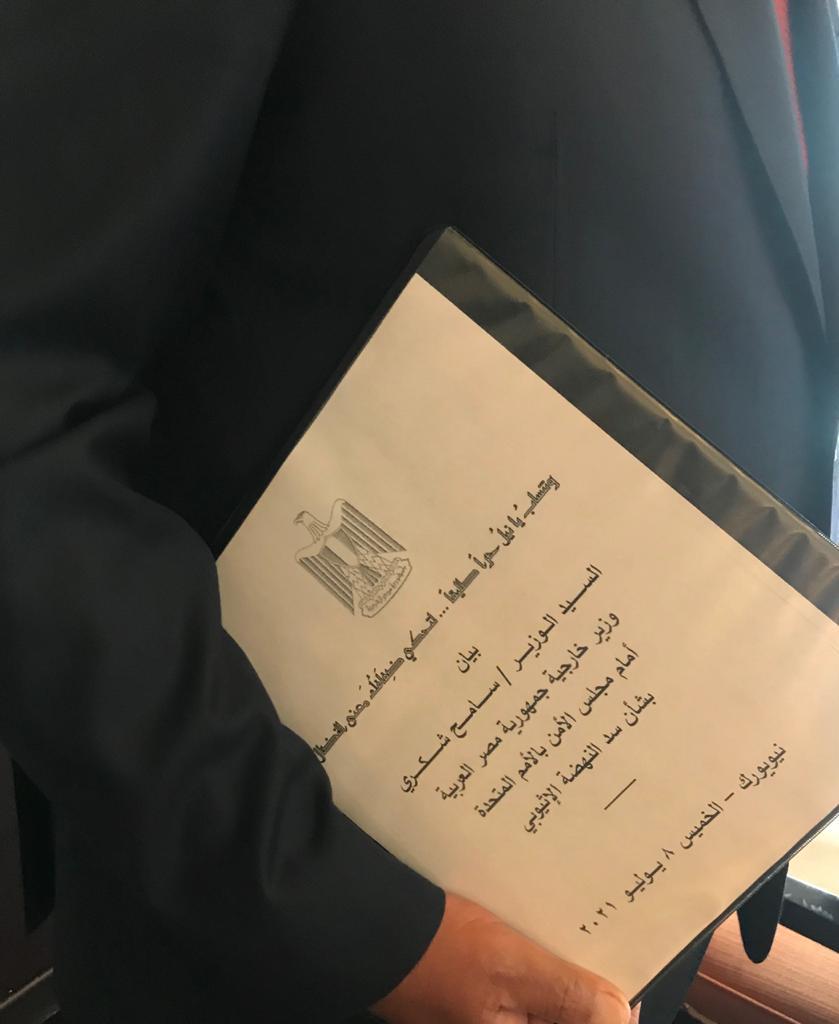 وتنسابُ يا نيلُ حراً طليقاً ... لتحكي ضِفافُكَ معنى النضال
بيان
السيد الوزير / سامح شكري
وزير خارجية جمهورية مصر العربية
أمام مجلس الأمن بالأمم المتحدة
بشأن سد النهضة الإثيوبي
نيويورك – الخميس ٨ يوليو ٢٠٢١